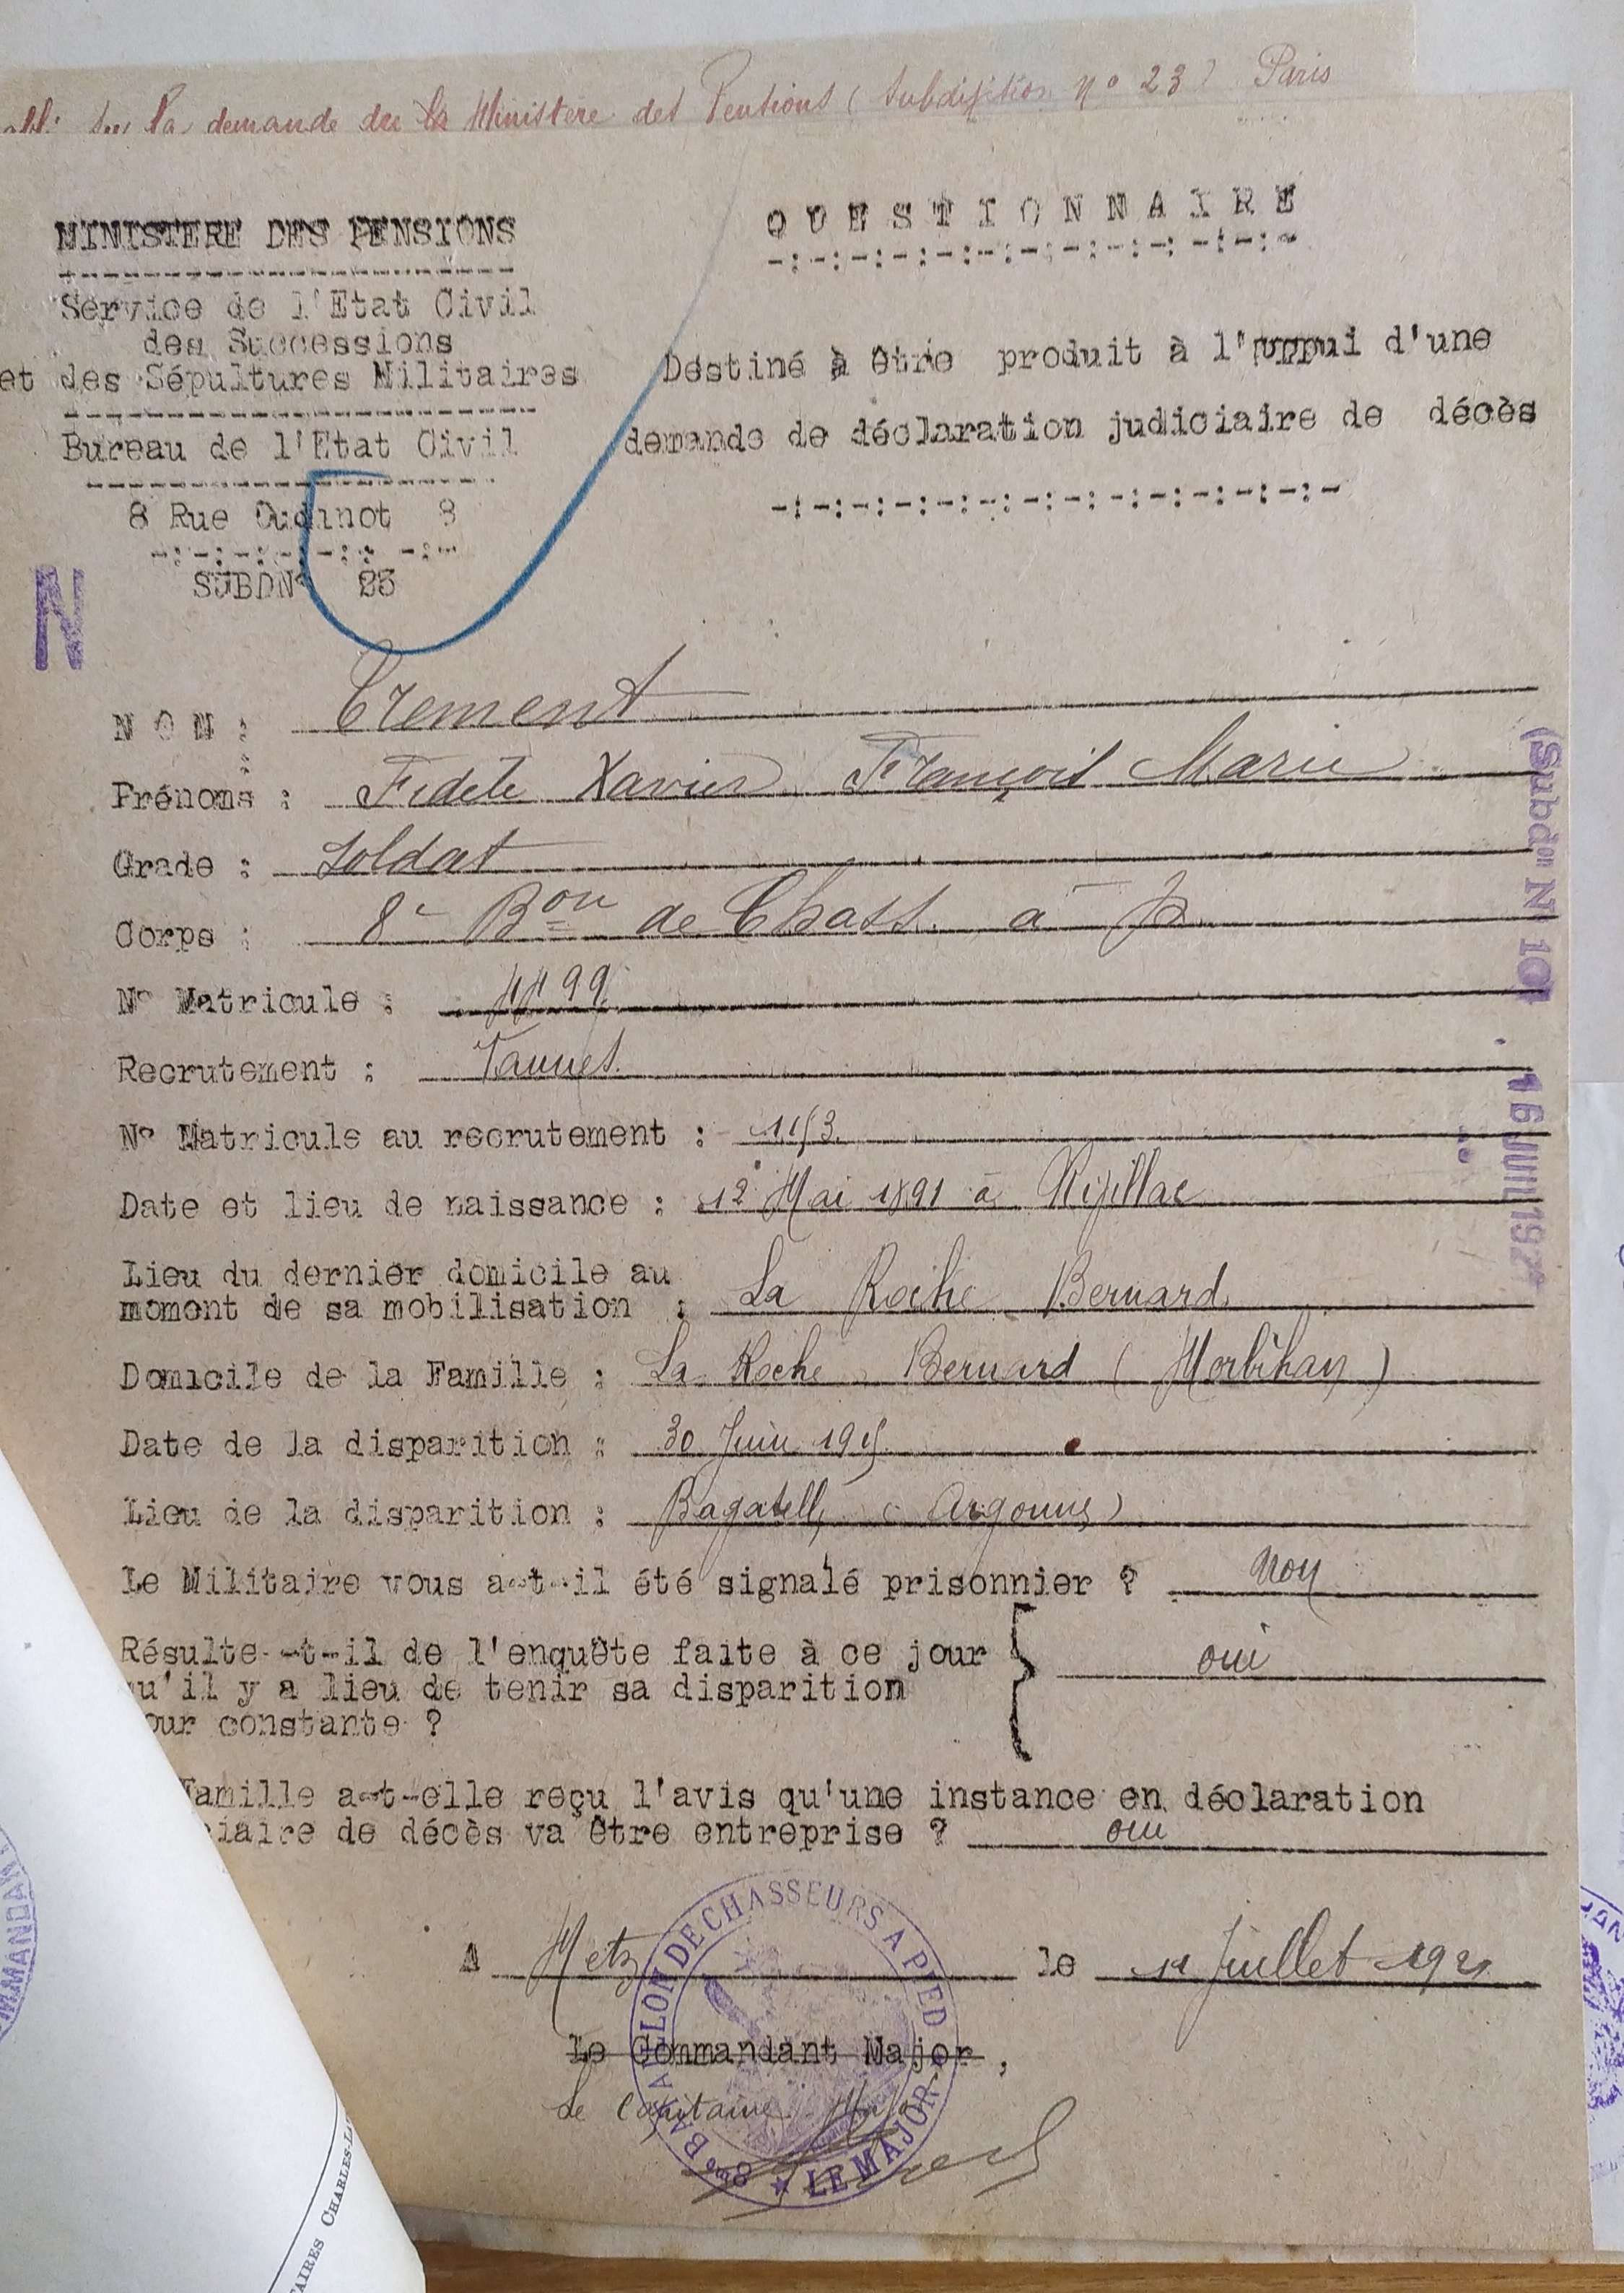 sur la demande du la Ministère des Pensions (Subdivision nº 23) Paris
MINISTERE DES PENSIONS
Service de l'Etat Civil
des Successions
et des Sépultures Militaires
Bureau de l'Etat Civil
8 Rue Oudinot 8
SUBDNº 23
QUESTIONNAIRE
Destiné à être produit à l'appui d'une
demande de déclaration judiciaire de décès
N
NOM : Crement
Prénoms : Fidèle Xavier François Marie
Grade : Soldat
Corps : 8e Bon de Chass. à P.
Nº Matricule : 4499
Recrutement : Vannes.
Nº Matricule au recrutement : 1153
Date et lieu de naissance : 12 Mai 1891 à
Lieu du dernier domicile au
moment de sa mobilisation : La Roche Bernard
Domicile de la Famille : La Roche Bernard (Morbihan)
Date de la disparition : 30 Juin 1915
Lieu de la disparition : Bagatelle (Argonne)
Le Militaire vous a-t-il été signalé prisonnier ? Non
Résulte-t-il de l'enquête faite à ce jour
qu'il y a lieu de tenir sa disparition
our constante ?
oui
Famille a-t-elle reçu l'avis qu'une instance en déclaration
iaire de décès va être entreprise ? oui
A Metz le 11 Juillet 1921
Le Commandant Major,
Le Capitaine
8me BATAILLON DE CHASSEURS A PIED
★ LE MAJOR ★
(Subdon N 101
16 JUIL 192
MMANDAN
AIRES CHARLES-L